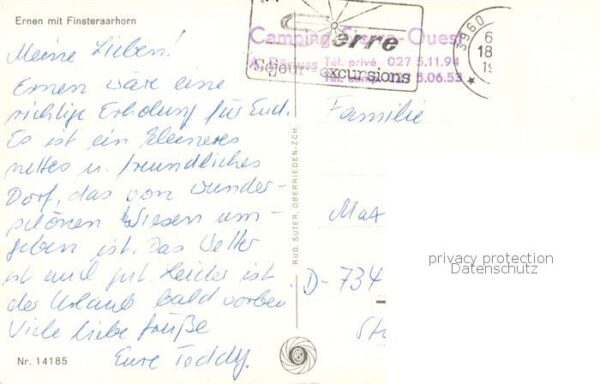 Ernen mit Finsteraarhorn
Meine Lieben!
Ernen wäre eine
richtige Erholung für Euch.
Es ist ein kleineres
nettes u. freundliches
Dorf, das von wunder-
schönen Wiesen um-
geben ist. Das Wetter
ist und gut. Leider ist
der Urlaub bald vorbei
Viele liebe Grüße
Eure Toddy.
Nr. 14185
RUD. SUTER, OBERRIEDEN-ZCH.
Camping Sierre-Ouest
Tél. privé 027 5.11.94
5.06.53
Sierre
Séjour excursions
3960
Familie
D-734
privacy protection
Datenschutz